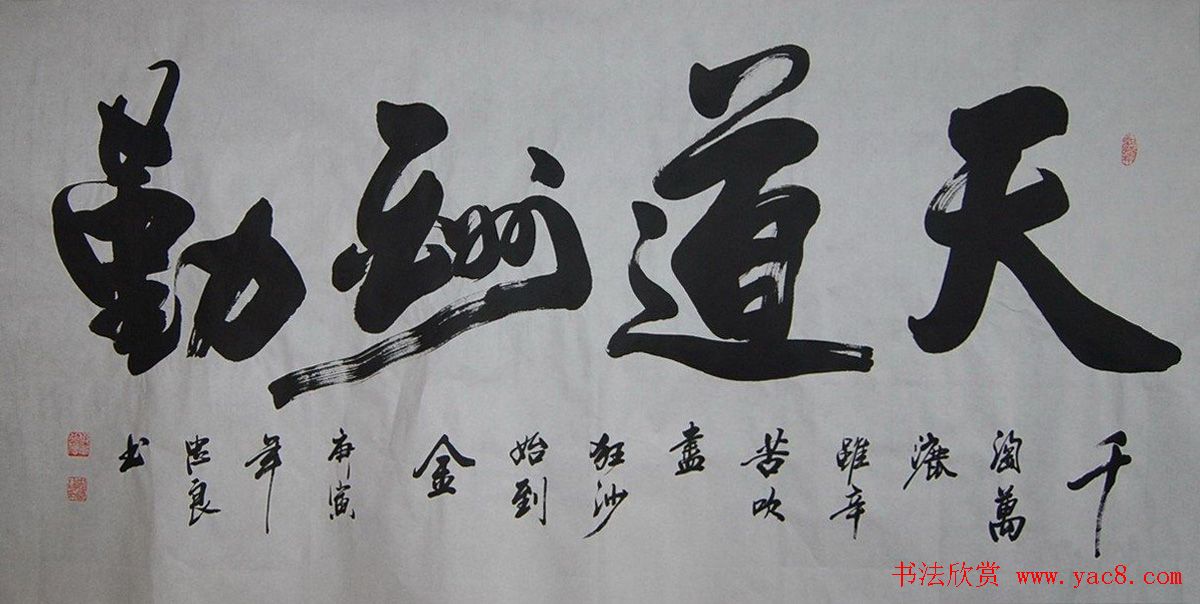 天道酬勤
千
淘萬
漉
雖辛
苦吹
盡
狂沙
始到
金
庚寅
年
忠良
书
书法欣赏 www.yac8.com